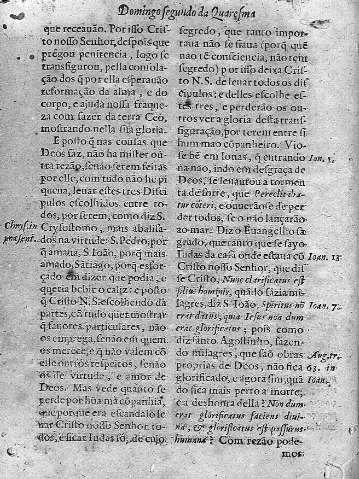 Domingo segundo da Quaresma
que receauão. Por isso Cris
to nosso Senhor, despois que
prégou penitencia, logo se
transfigurou, pella consola
ção dos q̃ por ella esperauão
reformação da alma, e do
corpo, e ajuda nossa fraque
za com fazer da terra Ceo,
mostrando nella sua gloria.
E posto q̃ nas cousas que
Deos faz, não ha mister ou
tra rezão, senão serem feitas
por elle, com tudo não he pi
quena, leuar estes tres Disci
pulos escolhidos entre to-
dos, por serem, como diz S.
Crysostomo, mais abalisa-
dos na virtude: S. Pedro, por
q̃ amaua, S. Ioão, porq̃ mais
amado, Satiago, porq̃ esfor-
çado em dizer que podia, e
queria beber o caliz: e posto
q̃ Cristo N. S. escolhendo dá
partes, cõ tudo quer mostrar
q̃ fauores particulares, não
os emprega, senão em quem
os merece; e q̃ não valem cõ
elle outros respeitos, senão
os de virtude, e amor de
Deos. Mas vede quanto se
perde por hũa má cõpanhia,
que porque era escandalo le
uar Cristo nosso Senhor to-
dos, e ficar Iudas só, de cujo
Chrysost in
præsent.
segredo, que tanto impor-
taua não se fiaua (porq̃ quẽ
não tẽ consciencia, não tem
segredo) por isso deixa Cris-
to N. S. de leuar todos os dis
cipulos: e delles escolhe es-
tes tres, e perderão os ou-
tros ver a gloria desta trans-
figuração, por terem entre si
hum mao cõpanheiro. Vio-
se bẽ em Ionas, q̃ entrando
na nao, indo em desgraça de
Deos, se leuantou a tormen
ta de sorte, que
e ouuerão se de per
der todos, se o não lançarão
ao mar. Diz o Euangelho sa
grado, que tanto que se sayo
Iudas da casa onde estaua cõ
Cristo nosso Senhor, que dis
se Cristo, Nunc clarificatus est
filius hominis, quãdo fazia mi-
lagres, diz S. Ioão, Spiritus nõ
erat datus, quia Iesus non dum
erat glorificatus; pois como
diz santo Agostinho, fazen-
do milagres, que saõ obras
proprias de Deos, não fica
glorificado, e agora sim, quã
do fica mais perto a morte,
e a deshonra della? Non dum
erat glorificatus faciens diui-
na, & glorificatus est passurus
humana? Com rezão pode-
mos
Ion. 1.
Ioan. 13
Ioan. 7.
Aug. tr.
63. in
Ioan.